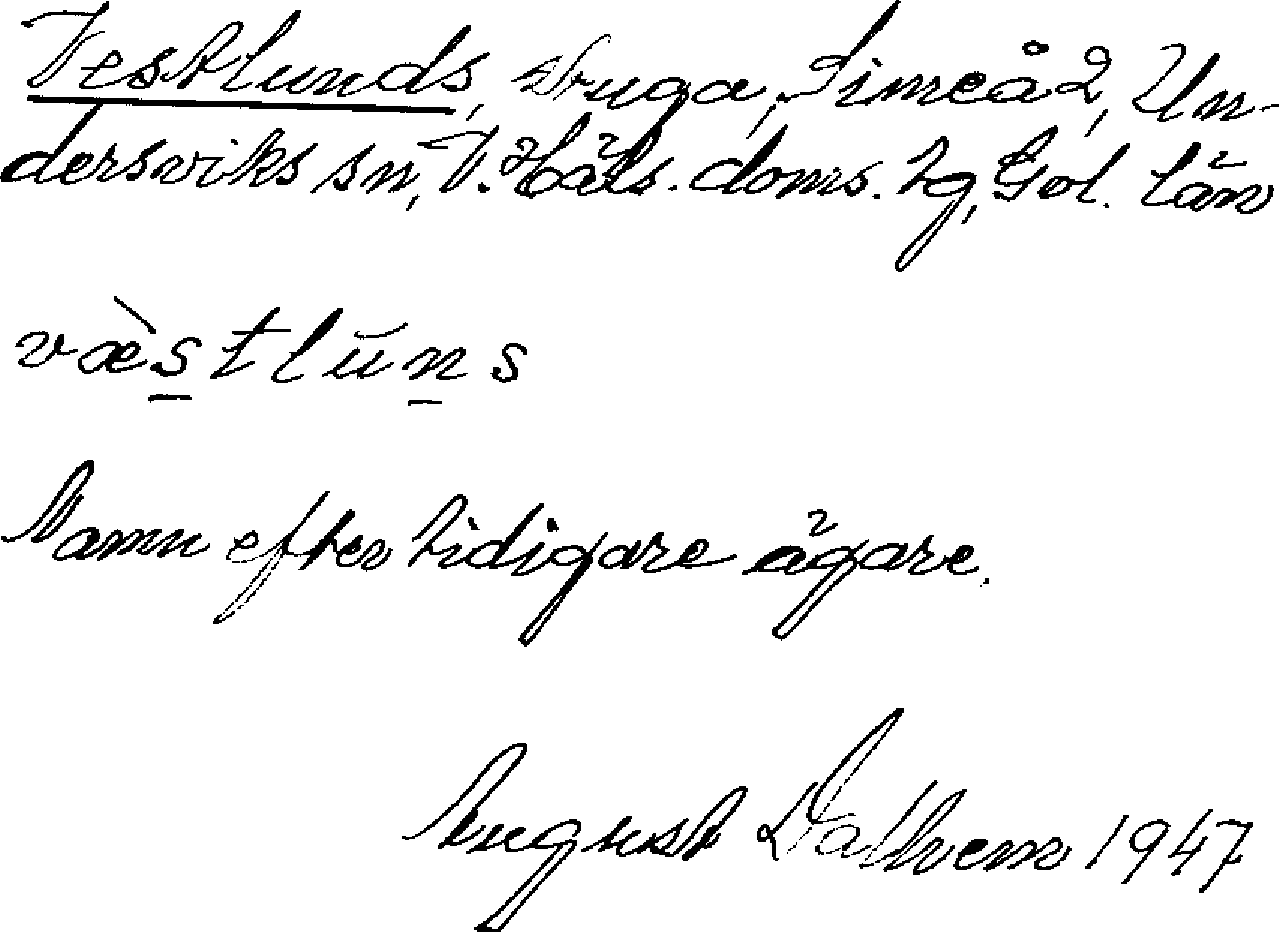 Vestlunds, stuga, Simeå 2, Un-
dersviks sn, V. Häls. doms. lg, Gvl. län
væ̀stlŭns
Namn efter tidigare ägare.
August Dallvem 1947